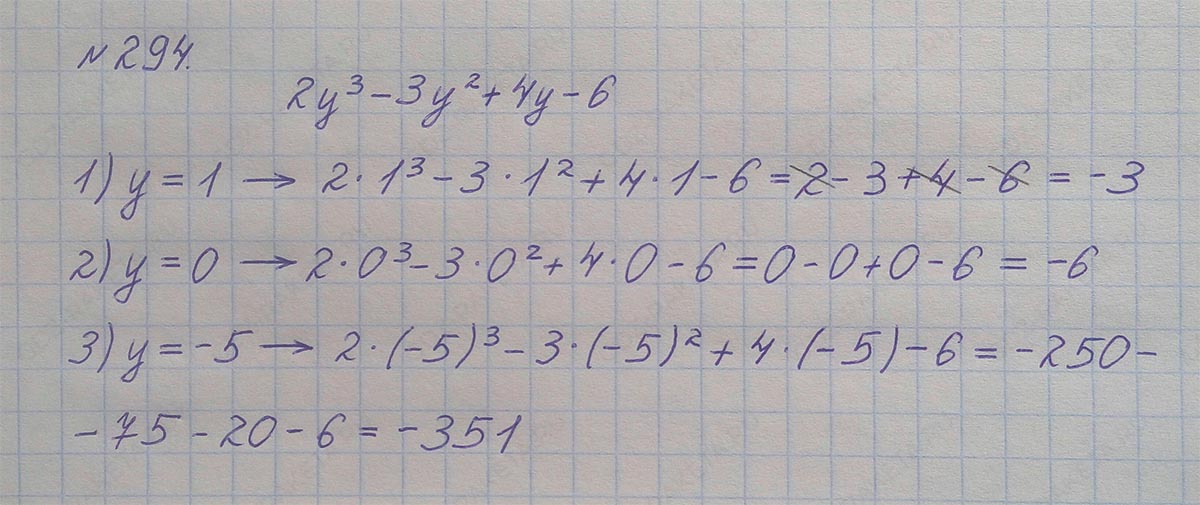 №294.
2y³-3y²+4y-6
1) y=1 → 2·1³-3·1²+4·1-6=2-3+4-6=-3
2) y=0 → 2·0³-3·0²+4·0-6=0-0+0-6=-6
3) y=-5 → 2·(-5)³-3·(-5)²+4·(-5)-6=-250-
-75-20-6=-351